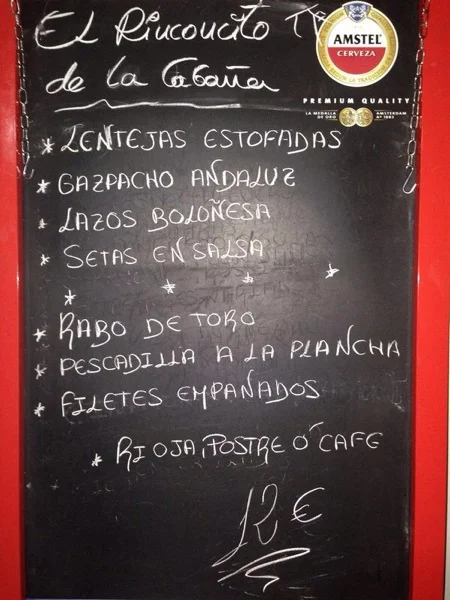 El Rinconcito
de La Cabaña
AMSTEL
CERVEZA
PREMIUM QUALITY
LA MEDALLA DE ORO
AMSTERDAM Aº 1883
* LENTEJAS ESTOFADAS
* GAZPACHO ANDALUZ
* LAZOS BOLOÑESA
* SETAS EN SALSA
* * * *
* RABO DE TORO
* PESCADILLA A LA PLANCHA
* FILETES EMPAÑADOS
* RIOJA, POSTRE O´ CAFE
12 €